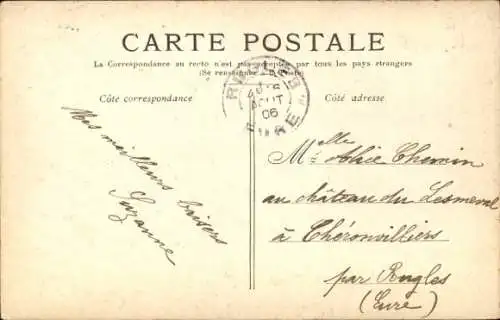 CARTE POSTALE
La Correspondance au recto n'est pas acceptée par tous les pays étrangers
(Se renseigner à la Poste)
Côté correspondance
Côté adresse
RUGLES
AOUT
06
EURE
Mes meilleurs baisers
Suzanne
Melle Alice Chemin
au château du Lesmeval
à Chéronvilliers
par Rugles
(Eure)